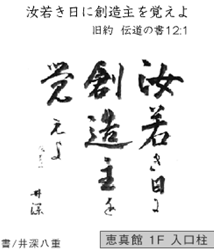 汝若き日に創造主を覚えよ
旧約 伝道の書12:1
汝若き日に
創造主を
覚えよ
井深
書/井深八重
恵真館 1F 入口柱